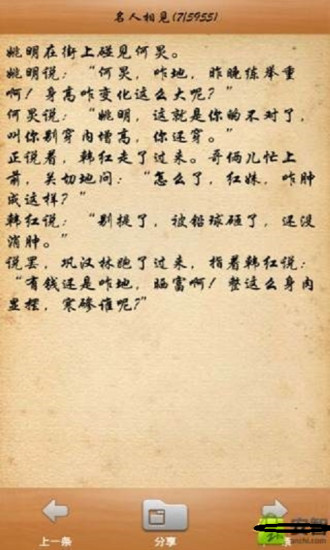 名人相见(7/5955)
姚明在街上碰见何炅。
姚明说：“何炅，咋地，昨晚练举重
啊！身高咋变化这么大呢？”
何炅说：“姚明，这就是你的不对了，
叫你别穿内增高，你还穿。”
正说着，韩红走了过来。哥俩儿忙上
前，关切地问：“怎么了，红妹，咋肿
成这样？”
韩红说：“别提了，被铅球砸了，还没
消肿。”
说罢，巩汉林跑了过来，指着韩红说：
“有钱还是咋地，晒富啊！整这么身肉
显摆，寒碜谁呢？”
上一条
分享
安智
anzhi.com